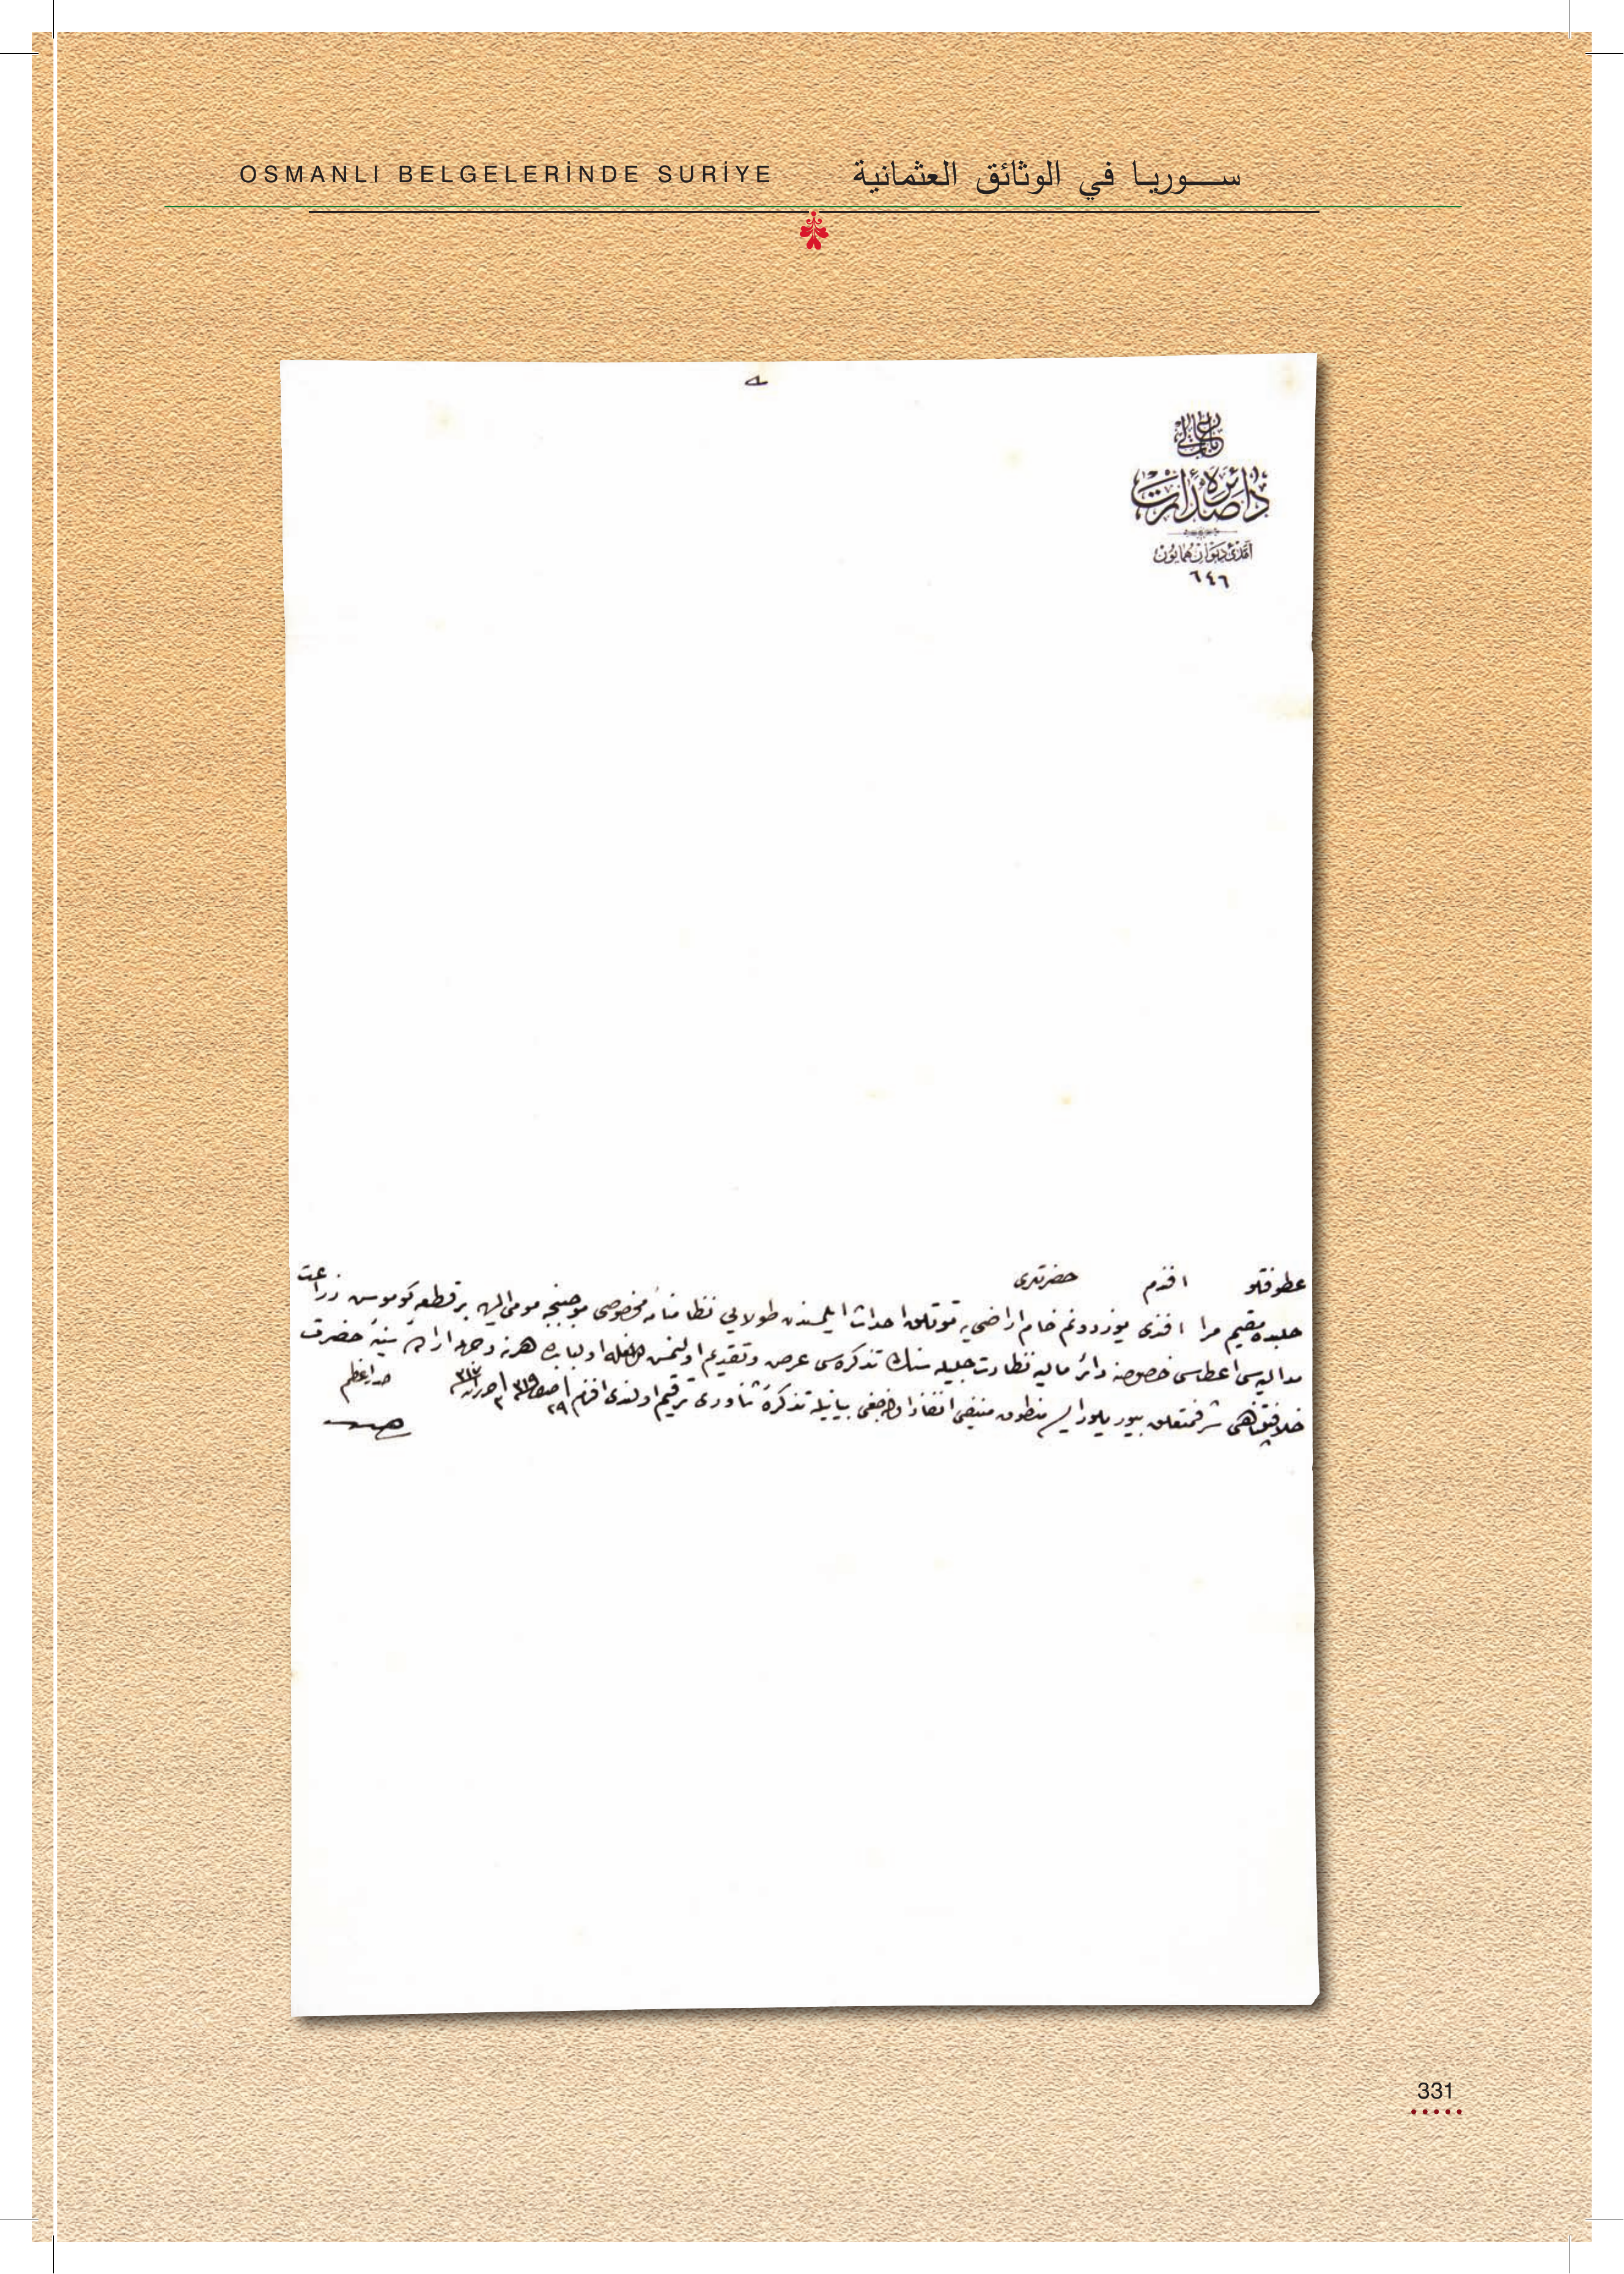 OSMANLI BELGELERİNDE SURİYE
سوريا في الوثائق العثمانية
باب عالی
دائره صدارت
آمدی دیوان همایون
٦٤٦
عطوفتلو افندم حضرتلری
حلبده مقیم مرا افندی یوز دونم خام اراضی یه توتلق احداث ایلمسندن طولایی نظامنامه مخصوصی موجبنجه مومی الیه بر قطعه كوموش زراعت
مدالیه سی اعطاسی خصوصنه دائر مالیه نظارت جلیله سنك تذكره سی عرض وتقدیم اولنمش اولبابده هر نه وجهله اراده سنیه حضرت
خلافتپناهی شرفمتعلق بیوریلور ایسه منطوق منیفی انفاذ بیانیله تذكره ثناوری ترقیم اولندی افندم
صدر اعظم
331